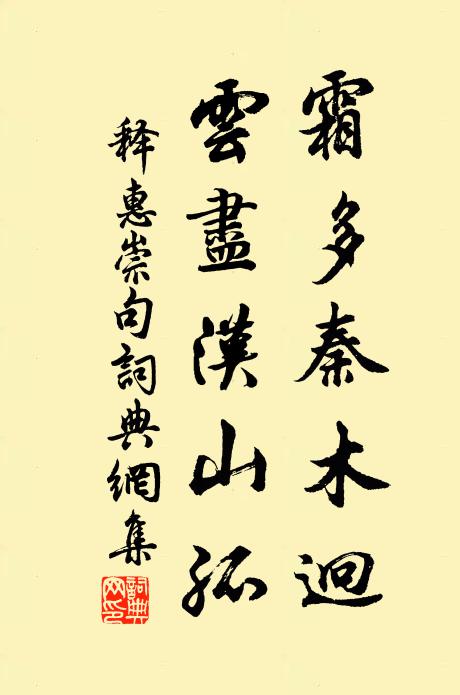 霜多秦木迥
雲盡漢山孤
释惠崇句詞典網集
詞典
网印